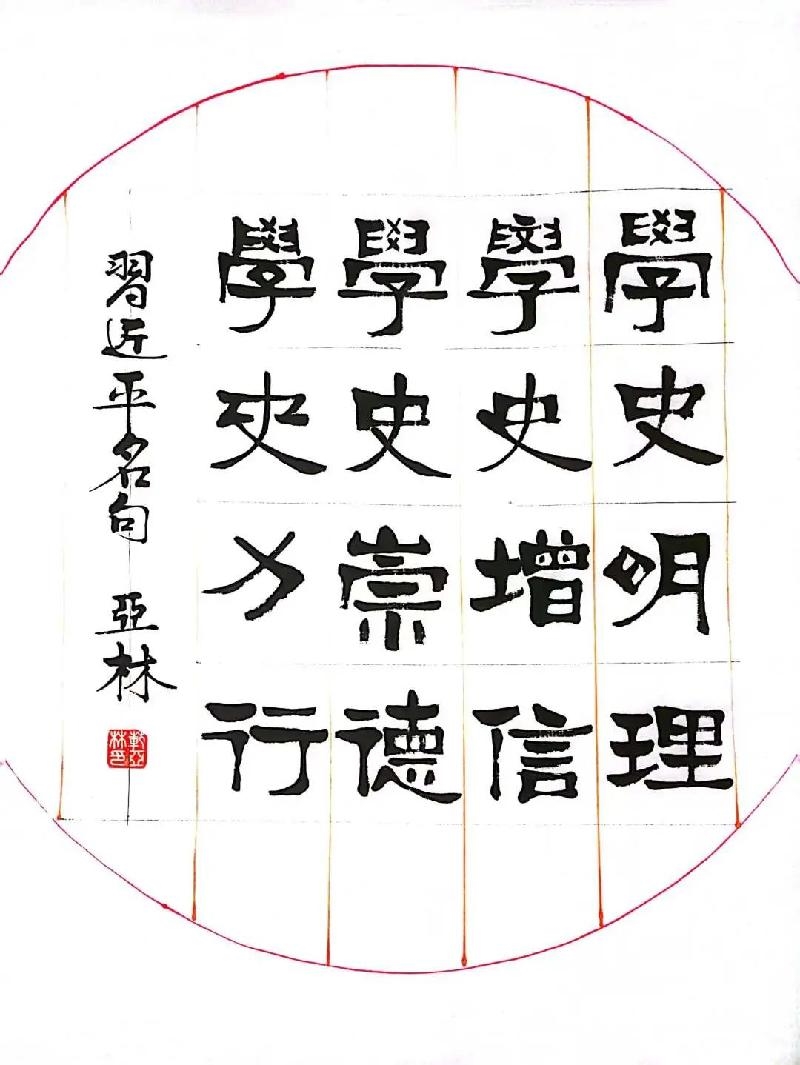 學史明理
學史增信
學史崇德
學史力行
習近平名句 亞林
靳亞林印